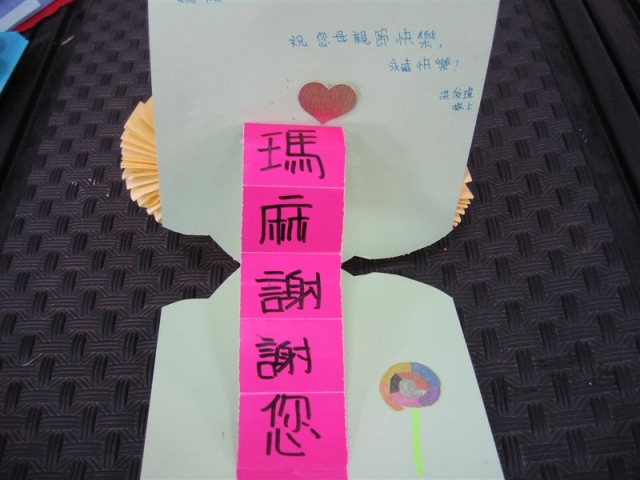 祝您母親節快樂,
永遠快樂!
敬上
瑪麻謝謝您